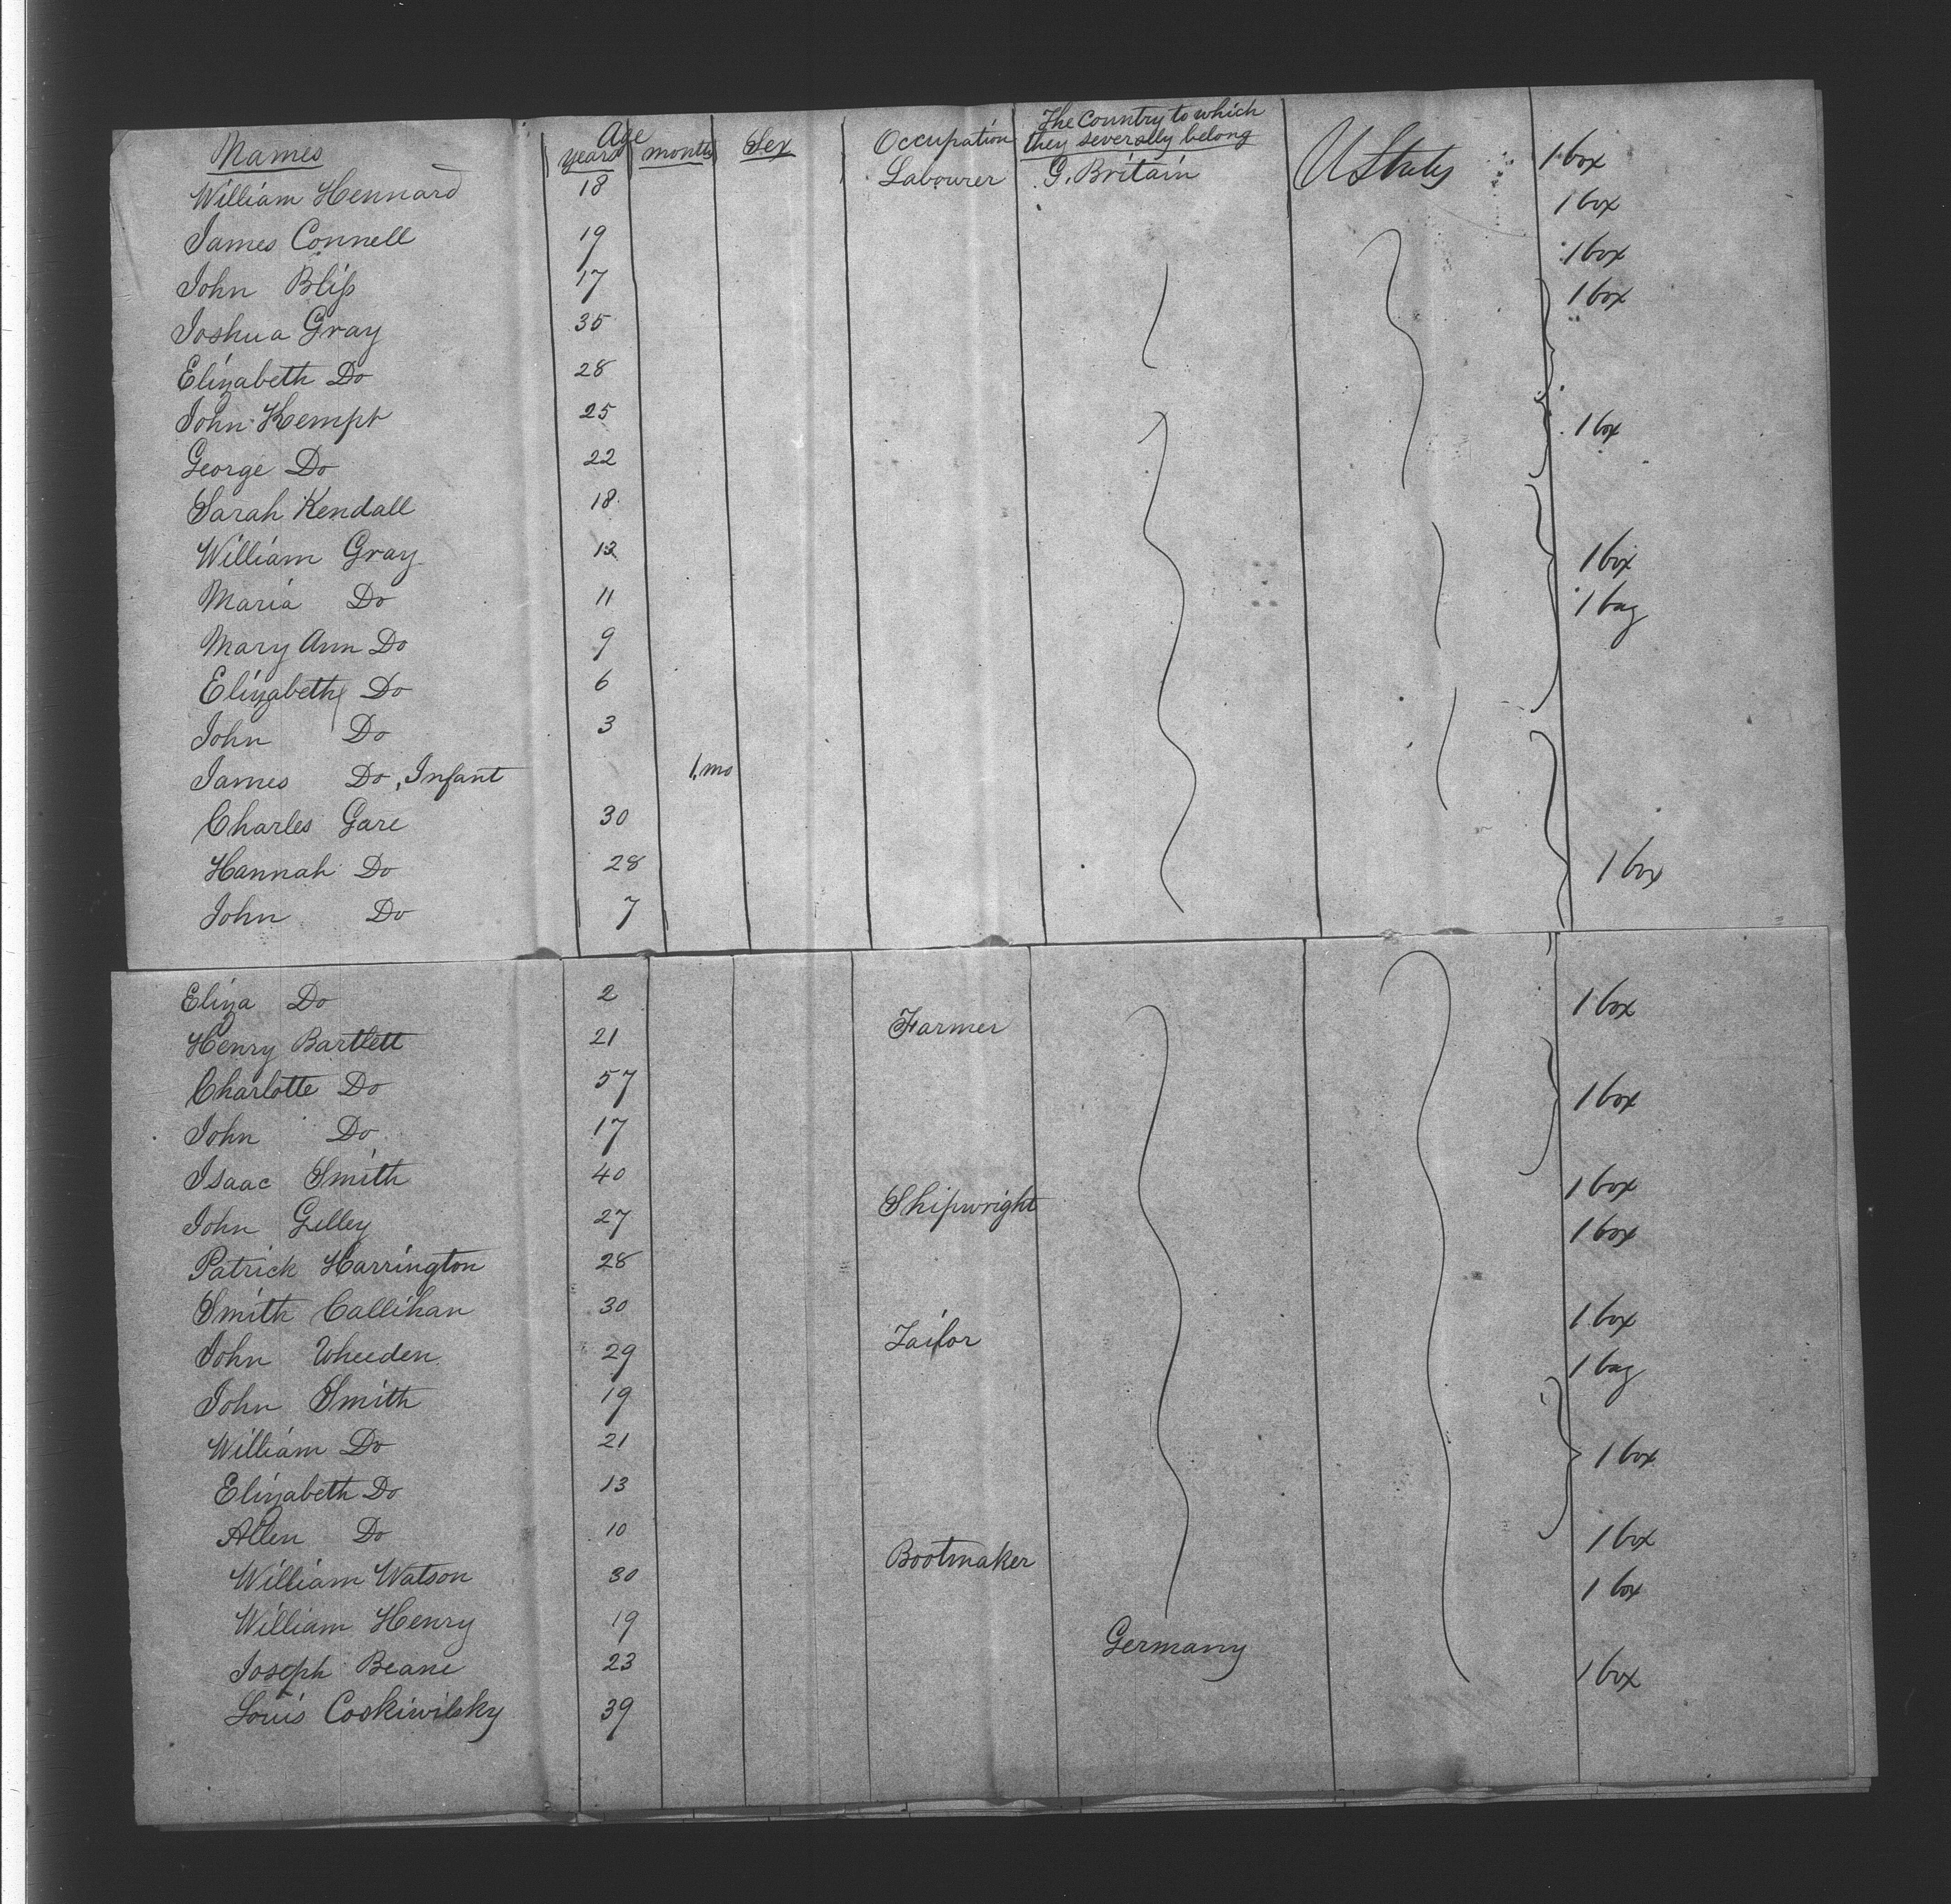 Names Age years months Sex Occupation The Country to which they severally belong
William Hennard 18 Labourer G. Britain U States 1 box
James Connell 19 1 box
John Bliss 17 1 box
Joshua Gray 35 1 box
Elizabeth Do 28
John Kempt 25 1 box
George Do 22
Sarah Kendall 18
William Gray 12 1 box
Maria Do 11 1 bag
Mary Ann Do 9
Elizabeth Do 6
John Do 3
James Do, Infant 1 mo
Charles Gare 30
Hannah Do 28 1 box
John Do 7
Eliza Do 2 1 box
Henry Bartlett 21 Farmer
Charlotte Do 57 1 box
John Do 17
Isaac Smith 40 1 box
John Gilley 27 Shipwright 1 box
Patrick Harrington 28
Smith Callihan 30 1 box
John Wheeden 29 Tailor 1 bag
John Smith 19
William Do 21 1 box
Elizabeth Do 13
Allen Do 10 1 box
William Watson 30 Bootmaker 1 box
William Henry 19
Joseph Beane 23 Germany 1 box
Louis Cookiwilsky 39